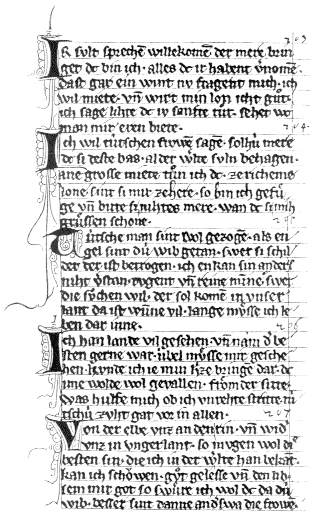 203
IR sult sprechē willekomē der mere brin
get dc bin ich · alles dc ir habent v̄nomē ·
dast gar ein wint nv fragent mich · ich
wil miete · vn̄ wirt min lon icht gůt ·
ich sage lihte dc iv sanfte tůt · sehet wc
man mir eren biete ·
204
Ich wil tútschen frowē sagē · solhú mere
dc si deste bas · al der w̄lte suln behagen ·
ane grosse miete tůn ich dc · ze richeme
lone · sint si mir ze here · so bin ich gefů
ge vn̄ bitte si nihtes mere · wan dc si mich
grůssen schone ·
205
Tútsche man sint wol gezogē · als en
gel sint dú wib getan · swer si schil
det der ist betrogen · ich enkan sin anders
niht v̄stan · tugent vn̄ reine miñe · swer
die sůchen wil · der sol komē in vnser
lant da ist wūne vil · lange můsse ich le
ben dar inne ·
206
Ich han lande vil gesehen · vn̄ nam d̄ be
sten gerne war · úbel můsse mir gesche
hen · kunde ich ie min h̄ze bringē dar · dc
ime wolde wol gevallen · frömder sitte ·
was hulfe mich ob ich vnrehte stritte · tú
tschú zuht gat vor in allen ·
207
Von der elbe vnz an den rin · vn̄ wid̄
vnz in vngerlant · so mvgen wol die
besten sin · die ich in der w̄lte han bekāt ·
kan ich schöwen · gůt gelesse vn̄ den lib ·
sem mir got so swůre ich wol dc da dú
wib · besser sint danne and̄swa die frowē